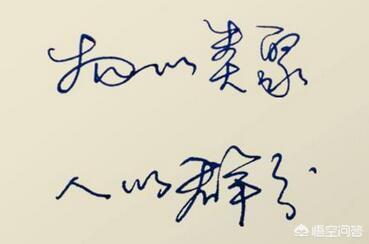 物以类聚
人以群分
悟空问答